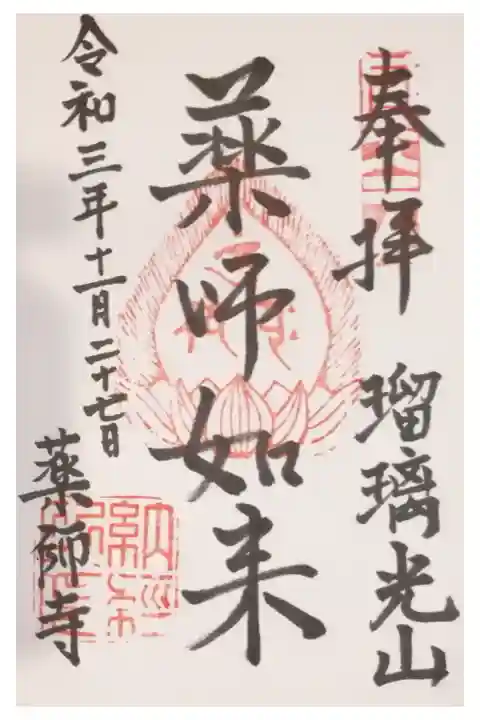 奉拝
瑠璃光山
薬師如来
令和三年十一月二十七日
薬師寺